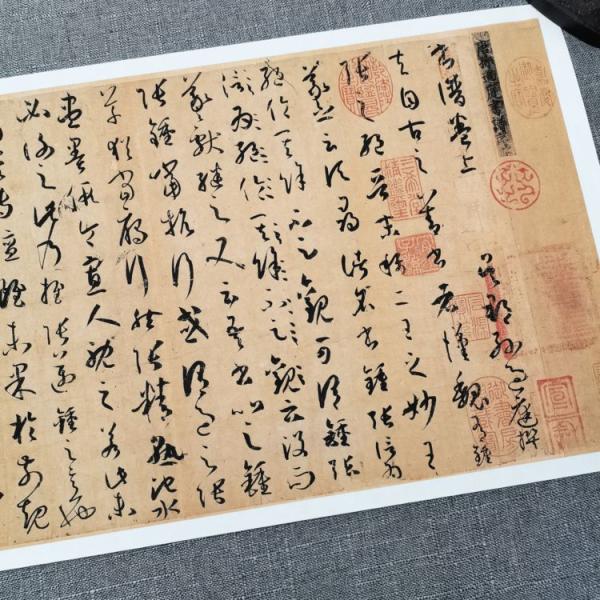 書譜卷上 吳郡孫過庭撰
夫自古之善書者漢魏有鍾
張之絕晉末稱二王之妙王
羲之云頃尋諸名書鍾張信為
絕倫其餘不足觀可謂鍾張
絕倫其餘不足觀云沒而
羲獻繼之又云吾書比之鍾
張鍾當抗行或謂過之張
草猶當鴈行然張精熟池水
盡墨假令寡人耽之若此未
必謝之此乃推張邁鍾之意
專擅雖未果於前規